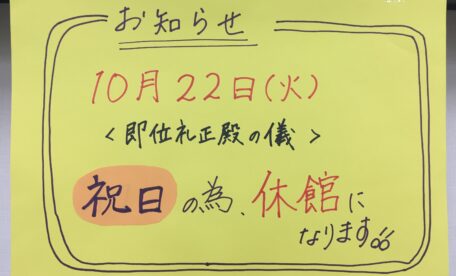 お知らせ
10月22日(火)
<即位礼正殿の儀>
祝日の為、休館に
なります。